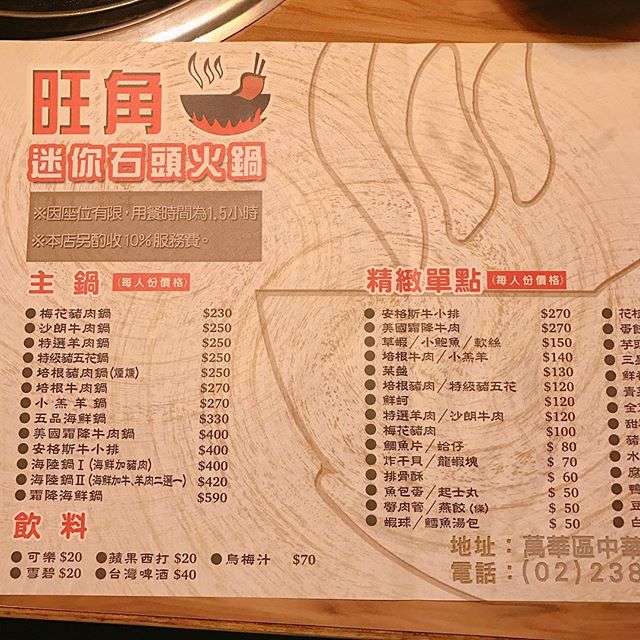 旺角
迷你石頭火鍋
※因座位有限,用餐時間為1.5小時
※本店另酌收10%服務費。
主鍋 (每人份價格)
梅花豬肉鍋 $230
沙朗牛肉鍋 $250
特選羊肉鍋 $250
特級豬五花鍋 $250
培根豬肉鍋(煙燻) $250
培根牛肉鍋 $270
小羔羊鍋 $270
五品海鮮鍋 $330
美國霜降牛肉鍋 $400
安格斯牛小排 $400
海陸鍋Ⅰ(海鮮加豬肉) $400
海陸鍋Ⅱ(海鮮加牛.羊肉二選一) $420
霜降海鮮鍋 $590
飲料
可樂 $20 蘋果西打 $20 烏梅汁 $70
雪碧 $20 台灣啤酒 $40
精緻單點 (每人份價格)
安格斯牛小排 $270
美國霜降牛肉 $270
草蝦/小鮑魚/軟絲 $150
培根牛肉/小羔羊 $140
菜盤 $130
培根豬肉/特級豬五花 $120
鮮蚵 $120
特選羊肉/沙朗牛肉 $120
梅花豬肉 $100
鯛魚片/蛤仔 $ 80
炸干貝/龍蝦塊 $ 70
排骨酥 $ 60
魚包蛋/起士丸 $ 50
蟹肉管/燕餃(條) $ 50
蝦球/鱈魚湯包 $ 50
花枝
芋頭
三
鮮
青
金
甜
豬
水
鴨
豆
白
地址:萬華區中華
電話:(02)238